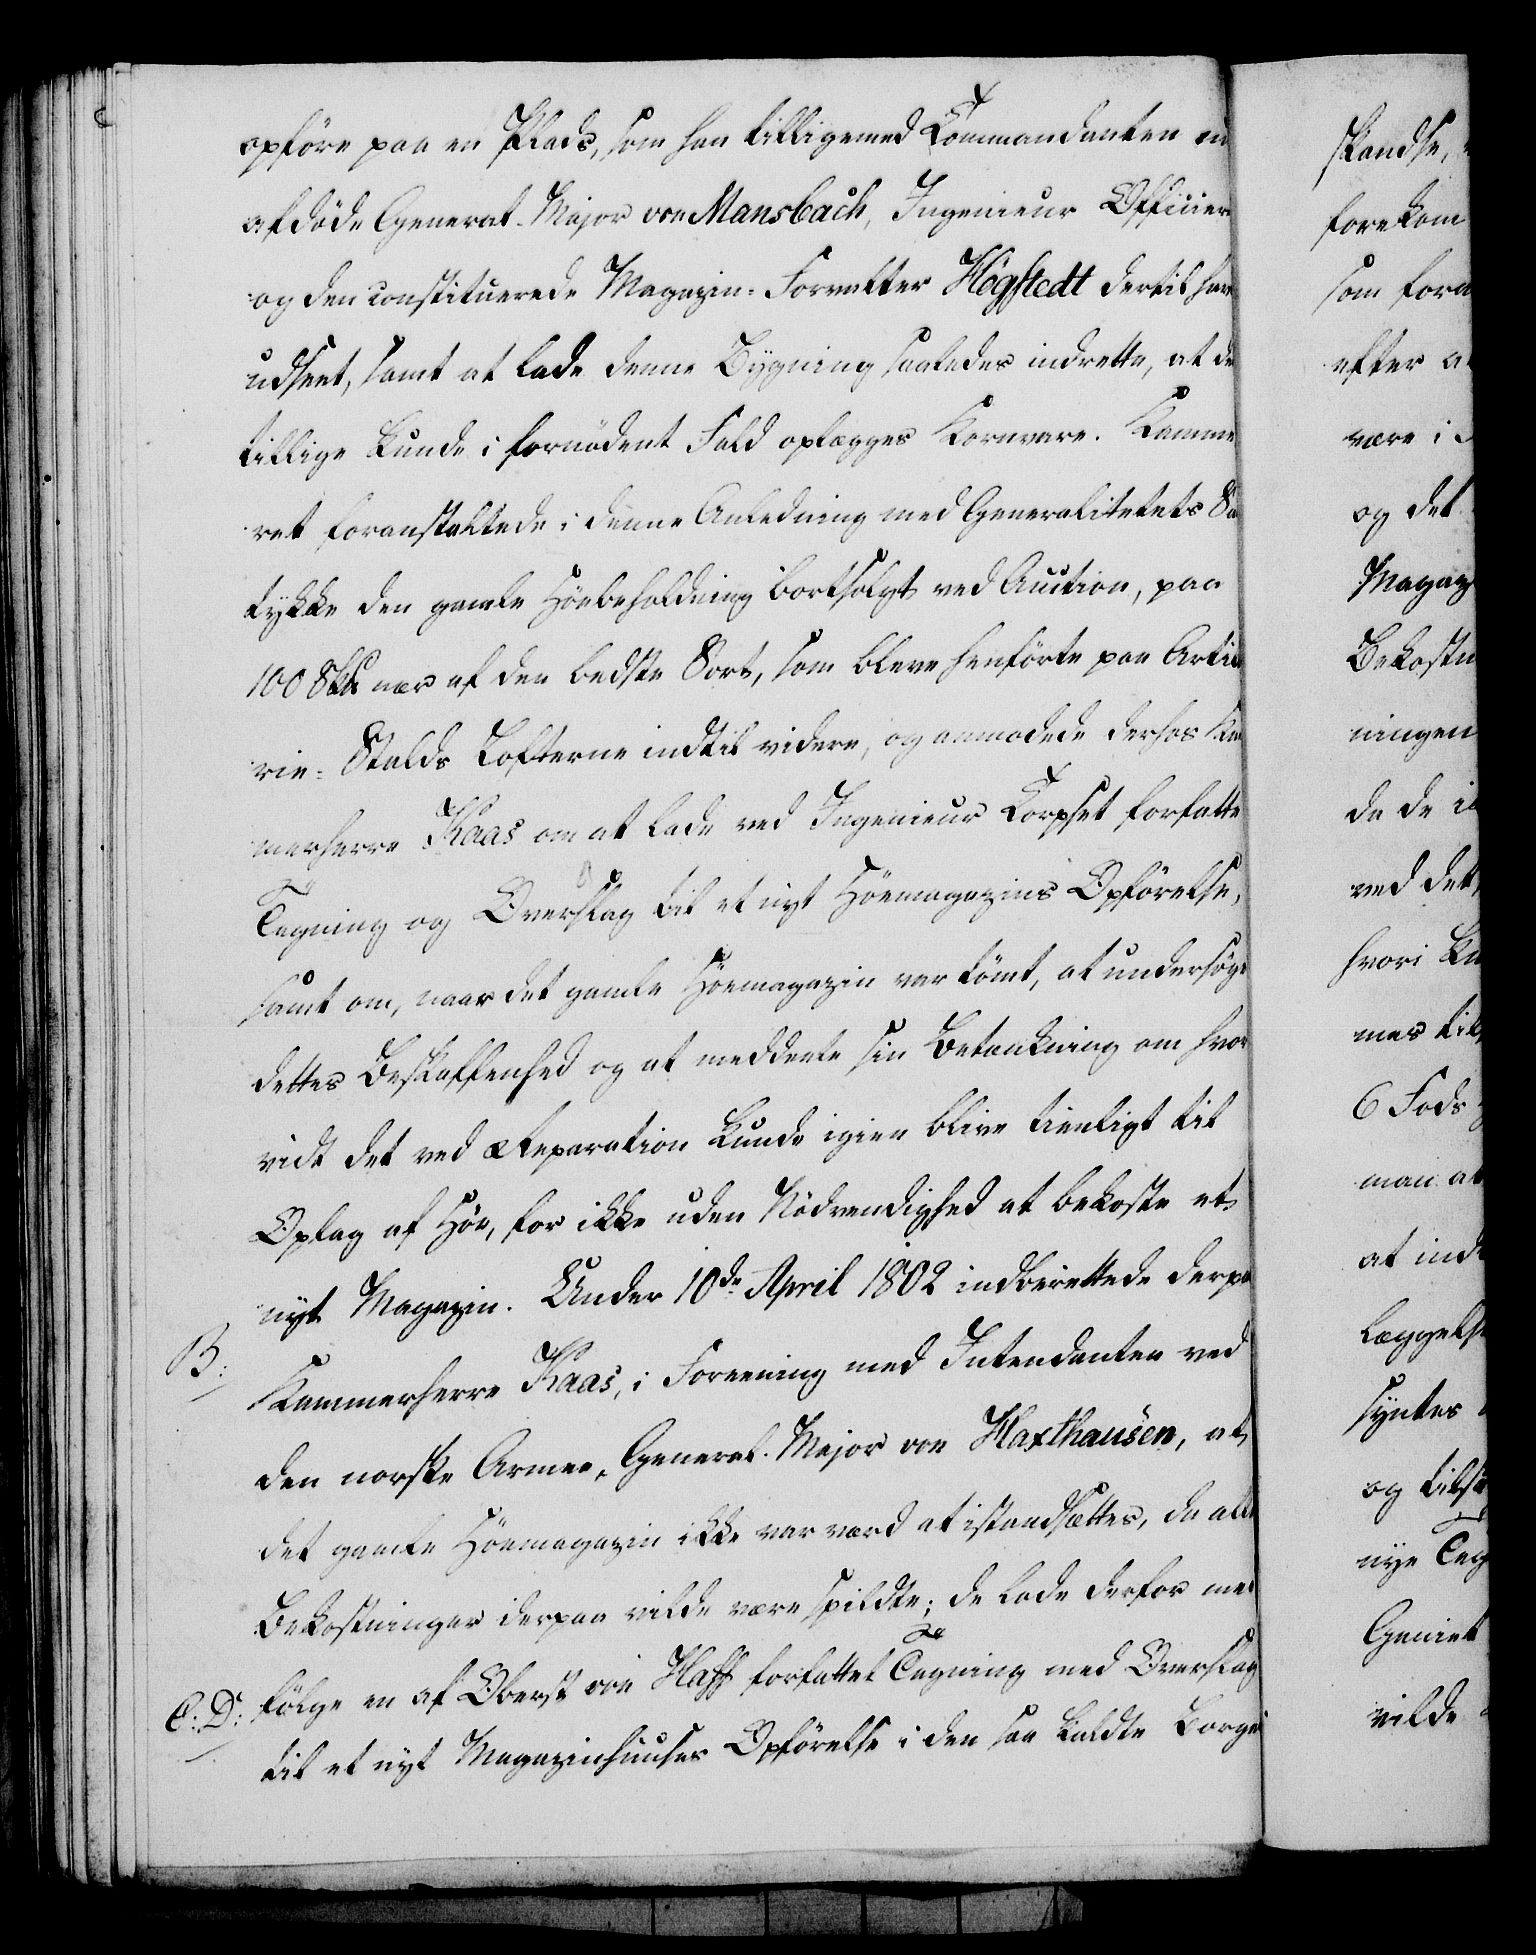 opföre paa en Plads, som han tilligemed Commandanten nu
afdöde General-Major von Mansbach, Ingenieur Officier
og den constituerede Magazin-Forvalter Högstedt dertil hav
udseet, samt at lade denne Bygning saaledes indrette, at de
tillige kunde i fornödent Fald oplægges Kornvare. Kamme
ret foranstaltede i denne Anledning med Generalitetets Sa
tykke den gamle Höebeholdning bortsolgt ved Auction, paa
100 Sk℔ nær af den bedste Sort, som bleve henförte paa Artil
rie-Stalds Lofterne indtil videre, og anmodede derhos Ka
merherre Kaas om at lade ved Ingenieur Corpset forfatte
Tegning og Overslag til et nyt Höemagazins Opförelse,
samt om, naar det gamle Höemagazin var tömt, at undersöge
dettes Beskaffenhed og at meddeele sin Betænkning om hvor
vidt det ved Reparation kunde igien blive tienligt til
Oplag af Höe, for ikke uden Nödvendighed at bekoste et
nyt Magazin. Under 10de April 1802 indberettede derpa
B: Kammerherre Kaas, i Foreening med Intendanten ved
den norske Armee, General-Major von Haxthausen, at
det gamle Höemagazin ikke var værd at istandsættes, da alle
Bekostninger derpaa vilde være spildte; de lode derfor med
C: D: fölge en af Oberst von Haff forfattet Tegning med Overslag
til et nyt Magazinhuuses Opförelse i den saa kaldte Borge
Skandse,
forekom
som fora
efter a
være i
og det
Magaz
Bekostn
ningen
da de i
ved det
hvori
mes til
6 Fods
man at
at ind
læggels
syntes
og tils
nye Teg
Geniet
vilde